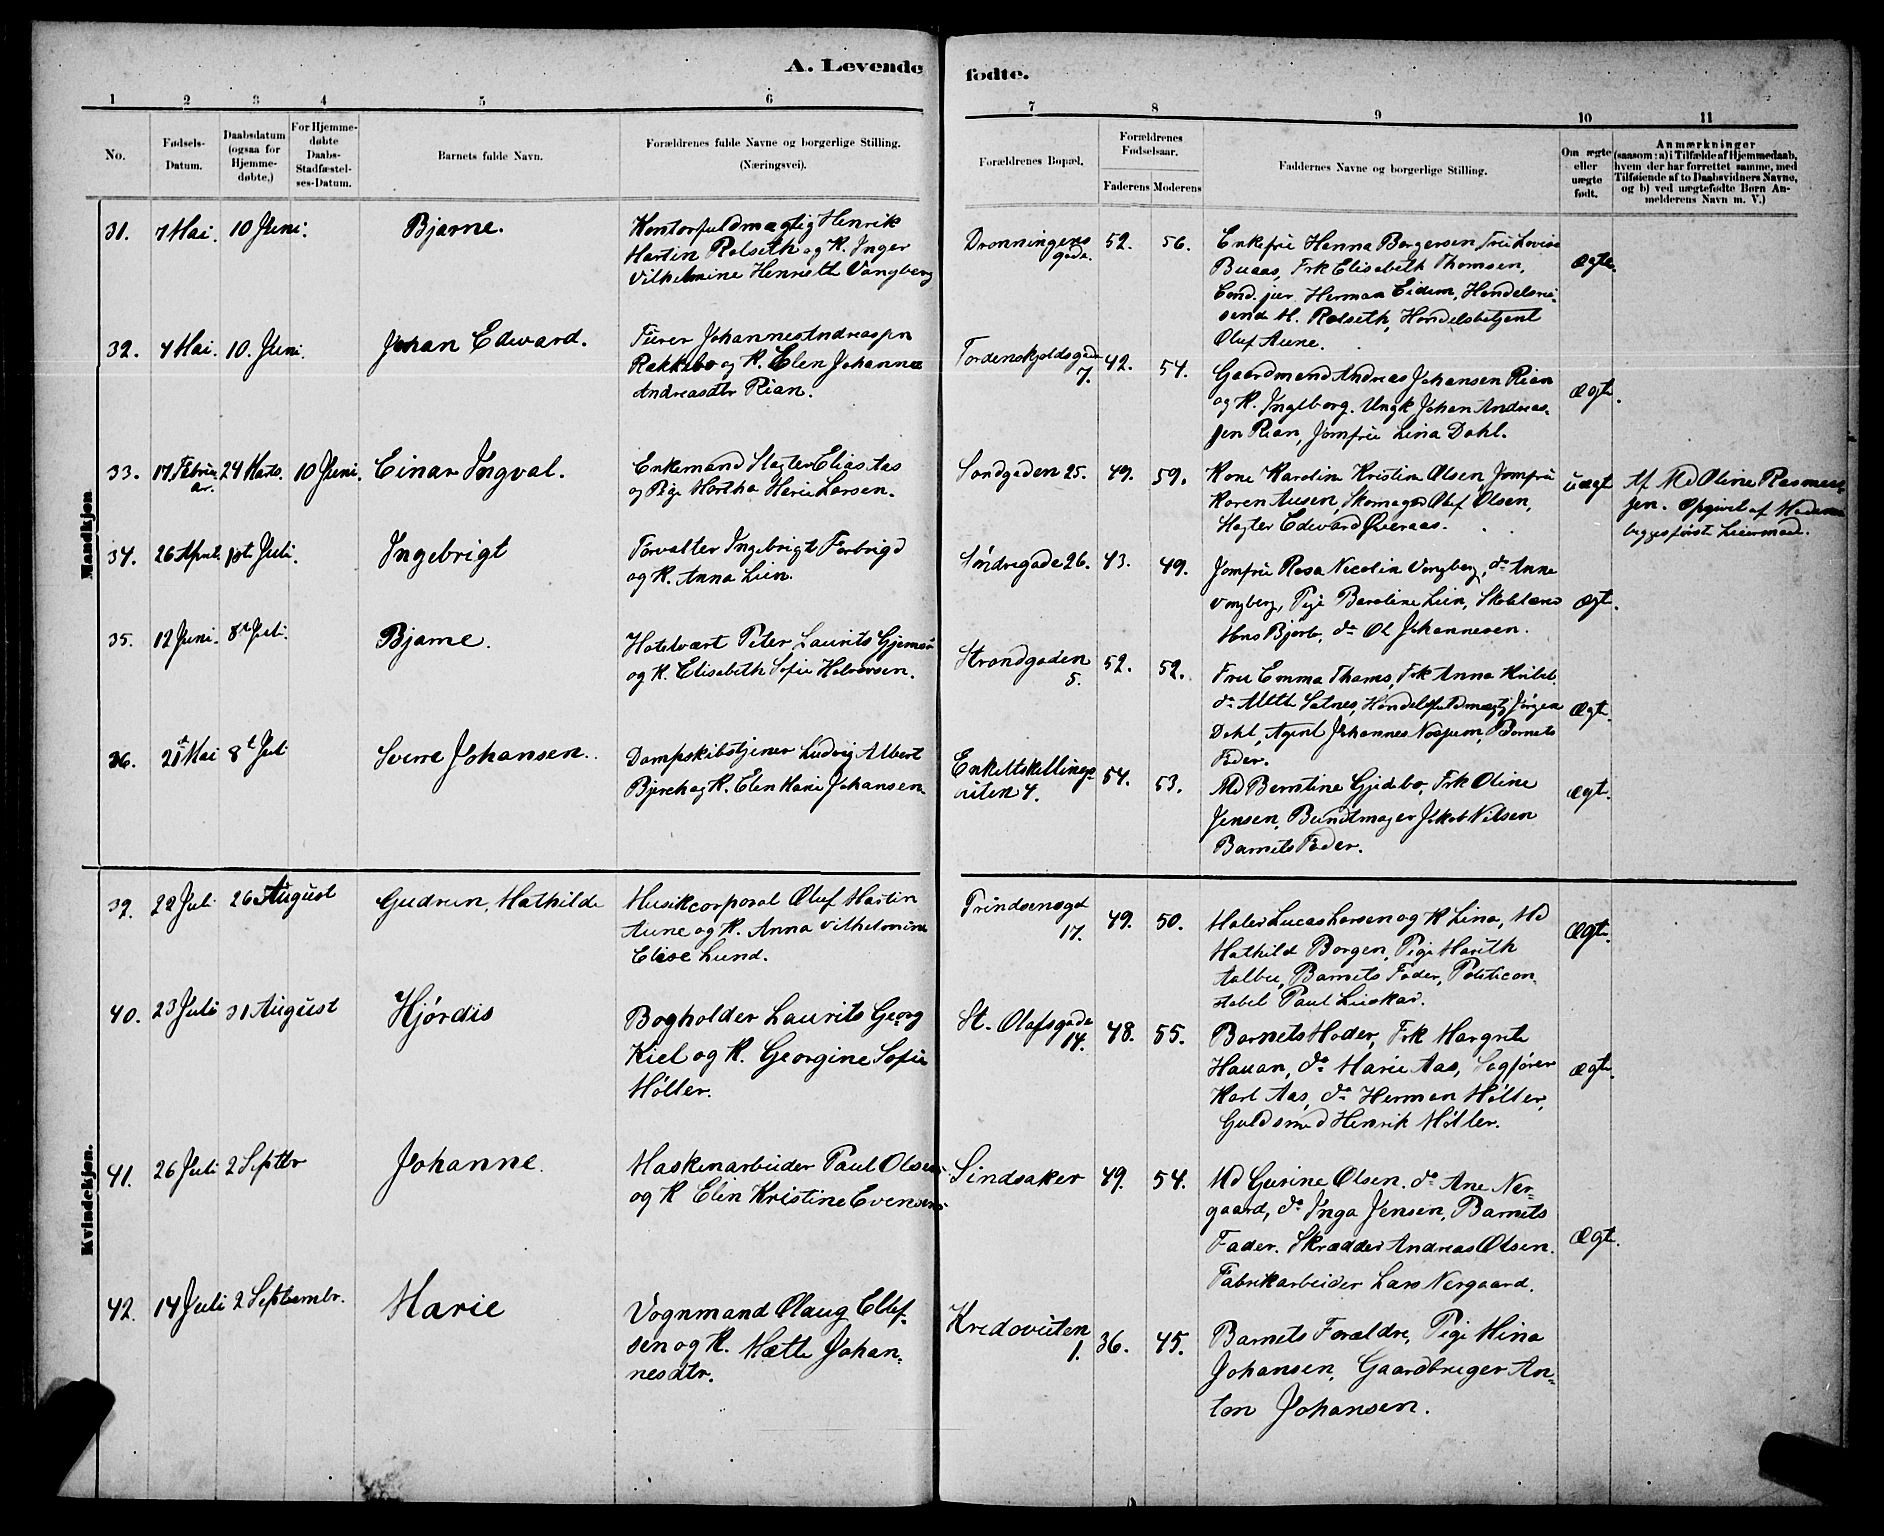 A. Levende
fødte.
1 2 3 4 5 6
7 8 9 10 11
No.
Fødsels-
Datum.
Daabsdatum
(ogsaa for
Hjemme-
døbte,)
For Hjemme-
døbte
Daabs-
Stadfæstel-
ses-Datum.
Barnets fulde Navn.
Forældrenes fulde Navne og borgerlige Stilling.
(Næringsvei).
Forældrenes Bopæl.
Forældrenes
Fødselsaar.
Faderens Moderens
Faddernes Navne og borgerlige Stilling.
Om ægte
eller
uægte
født.
Anmærkninger
(saasom: a) i Tilfælde af Hjemmedaab,
hvem der har forrettet samme, med
Tilføiende af to Daabsvidners Navne,
og b) ved uægtefødte Børn An-
melderens Navn m. V.)
Mandkjøn
31. 7 Mai. 10 Juni. Bjarne.
Kontorfuldmægtig Henrik
Martin Rolseth og K. Inger
Vilhelmine Henrieth Vangberg
Dronningens
gade.
52. 56.
Enkefru Hanna Borgersen, Fru Lovise
Buaas, Frk Elisabeth Thomsen,
Cand. jur. Herman Eidem, Handelsrei-
sende M. Rolseth, Handelsbetjent
Oluf Aune.
Ægte.
32. 4 Mai. 10. Juni. Johan Edvard.
Furer Johannes Andreassen
Rakkebo og K. Elen Johanna
Andreasdtr Rian.
Tordenskjoldsgade
7.
42. 54.
Gaardmand Andreas Johansen Rian
og K. Ingeborg. Ungk Johan Andreas-
sen Rian, Jomfru Lina Dahl.
Ægte.
33. 17 Februar. 24 Marts. 10 Juni. Einar Ingval.
Enkemand Slagter Elias Aas
og Pige Martha Marie Larsen.
Sandgaden 25. 49. 59.
Kone Karolin Kristine Olsen, Jomfru
Karen Ausen, Skomager Oluf Olsen,
Slagter Edevard Øveraas.
uægt
Af Md Oline Rasmus-
sen. Opgivet af Moderen
begges første Leiermaal.
34. 26 April. 1ste Juli. Ingebrigt
Forvalter Ingebrigt Forbrigd
og K. Anna Lien.
Søndregade 26. 43. 49.
Jomfru Rosa Nicolin Vangberg, do Anne
Vangberg, Pige Baroline Lien,
Hans Bjørb, do Ol Johannesen.
Ægt.
35. 12 Juni. 8de Juli. Bjarne.
Hotelvært Peter Laurits Gjemsø
og K. Elisabeth Sofie Halvorsen.
Strandgaden
5.
52. 52.
Fru Emma Thams, Frk Anna
do Mette Satnes, Handelsfuldmægtig Jørgen
Dahl, Agent Johannes Nossum, Barnets
Fader.
Ægt.
36. 21 Mai 8de Juli Sverre Johansen.
Dampskibstjener Ludvig Albert
Bjerch og K. Elen Marie Johansen
Enkeltskillings-
viten 4.
54. 53.
Md Berntine Gjedebo, Frk Oline
Jensen, Bundtmager Jakob Nilsen
Barnets Fader.
Ægt.
Kvindekjøn.
39. 22 Juli 26 August Gudrun, Mathilde
Musikcorporal Oluf Martin
Aune og K. Anna Vilhelmine
Elise Lund.
Trindsensgd
17.
49. 50.
Maler Lucas Larsen og K Lina, Md
Mathild Borgen, Pige Marith
Aalbu, Barnets Fader, Politicon-
stabel Paul Luskar.
Ægt.
40. 23 Juli 31 August Hjørdis
Bogholder Laurits Georg
Kiel og K. Georgine Sofie
Møller.
St. Olafsgade
14.
48. 55.
Barnets Moder, Frk Margrete
Hauan, do Marie Aas, Sagfører
Karl Aas, do Herman Møller,
Guldsmed Henrik Møller.
Ægt.
41. 26 Juli 2 Septbr Johanne.
Maskinarbeider Paul Olsen
og K Elin Kristine Evensen
Sindsaker 49. 54.
Md Gurine Olsen. do Ane Ner-
gaard, do Inga Jensen, Barnets
Fader. Skrædder Andreas Olsen.
Fabrikarbeider Lars Nergaard.
Ægt.
42. 14 Juli 2 Septembr. Marie
Vognmand Olaug Ellef-
sen og K. Mætte Johan-
nesdtr.
Kredoveiten
1.
36. 45.
Barnets Forældre, Pige Mina
Johansen, Gaardbruger An-
ton Johansen.